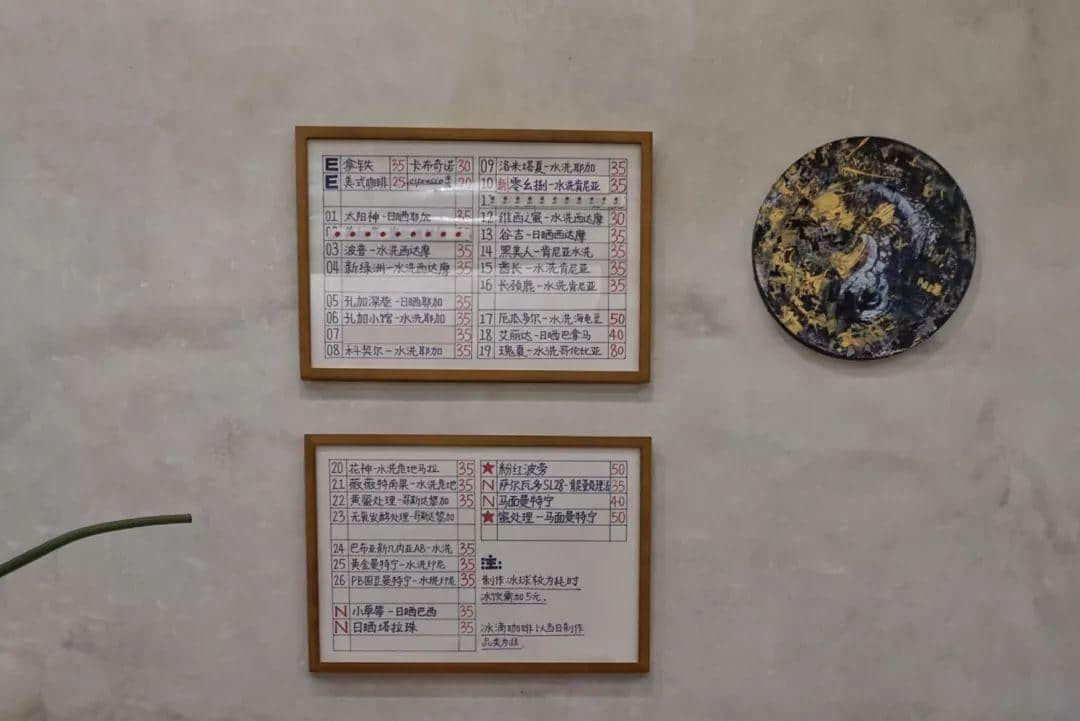 E 拿铁 35 卡布奇诺 30
E 美式咖啡 25 espresso
01 太阳神-日晒耶加 35
03 波音-水洗西达摩 35
04 新绿洲-水洗西达摩 35
05 孔加深巷-日晒耶加 35
06 孔加小馆-水洗耶加 35
07 35
08 科契尔-水洗耶加 35
09 洛米塔夏-水洗耶加 35
10 新零幺捌-水洗肯尼亚 35
12 维西之蜜-水洗西达摩 30
13 谷吉-日晒西达摩 35
14 黑美人-肯尼亚水洗 35
15 酋长-水洗肯尼亚 35
16 长颈鹿-水洗肯尼亚 35
17 厄瓜多尔-水洗海龟豆 50
18 艾丽达-日晒巴拿马 40
19 瑰夏-水洗哥伦比亚 80
20 花神-水洗危地马拉 35
21 薇薇特南果-水洗危地 35
22 黄蜜处理-哥斯达黎加 35
23 无氧发酵处理-哥斯达黎加
24 巴布亚新几内亚AB-水洗 35
25 黄金曼特宁-水洗印尼 35
26 PB圆豆曼特宁-水洗印尼 35
N 小草莓-日晒巴西 35
N 日晒塔拉珠 35
★ 粉红波旁 50
N 萨尔瓦多SL28- 35
N 马面曼特宁 40
★ 蜜处理-马面曼特宁 50
注:
制作冰球较为耗时
冰饮需加5元.
冰滴咖啡以当日制作
品类为准.